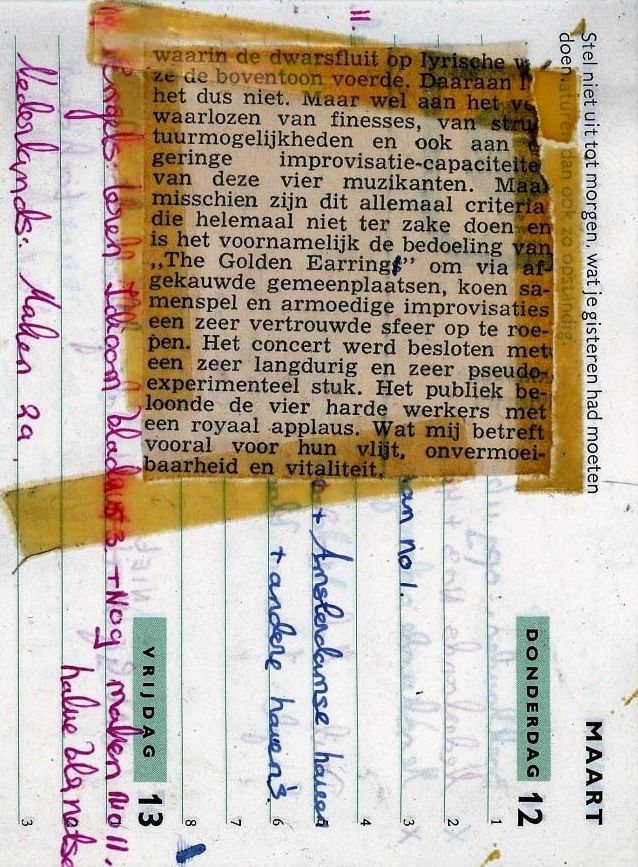 waarin de dwarsfluit op lyrische
ze de boventoon voerde. Daaraan
het dus niet. Maar wel aan het
waarlozen van finesses, van
tuurmogelijkheden en ook aan
geringe improvisatie-capaciteite
van deze vier muzikanten. Maa
misschien zijn dit allemaal criteria
die helemaal niet ter zake doen en
is het voornamelijk de bedoeling van
„The Golden Earrings” om via af-
gekauwde gemeenplaatsen, koen sa-
menspel en armoedige improvisaties
een zeer vertrouwde sfeer op te roe-
pen. Het concert werd besloten met
een zeer langdurig en zeer pseudo-
experimenteel stuk. Het publiek be-
loonde de vier harde werkers met
een royaal applaus. Wat mij betreft
vooral voor hun vlijt, onvermoei-
baarheid en vitaliteit.
Stel niet uit tot morgen, wat je gisteren had moeten
doen
MAART
DONDERDAG 12
1
2
3
4
5
6
7
8
no 1.
+ Amsterdamse haven
+ andere haven's.
VRIJDAG 13
11.
Engels: leren Idioom blad 3. + Nog maken no 11.
halve blz
Nederlands: Maken 2a
3